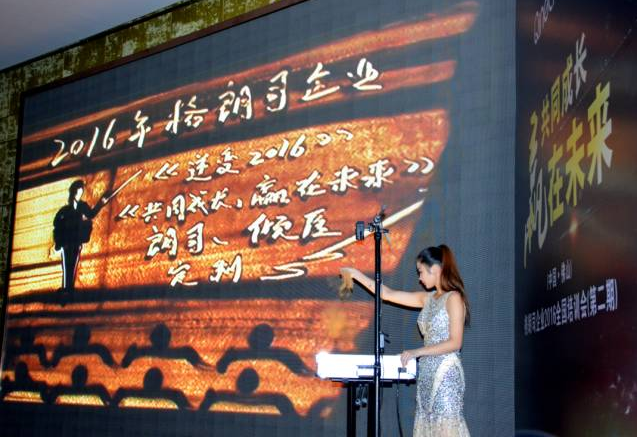 2016年格朗司企业
《迸变2016》
《共同成长,赢在未来》
朗司、倾巨
共同成长
赢在未来
(中国·佛山)
格朗司企业2016全国培训会(第二期)